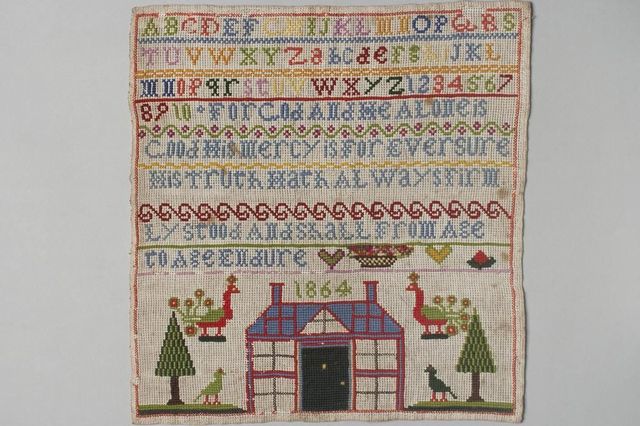 ABCDEFGHIJKLMNOPQRS
TUVWXYZabcdefgHIJKL
mnopqrstuvWXYZ1234567
8910 For God And He Alone is
Good His mercy is For Ever sure
His Truth Hath ALWays Firm
Ly stood And shall From Age
to Age Endure
1864